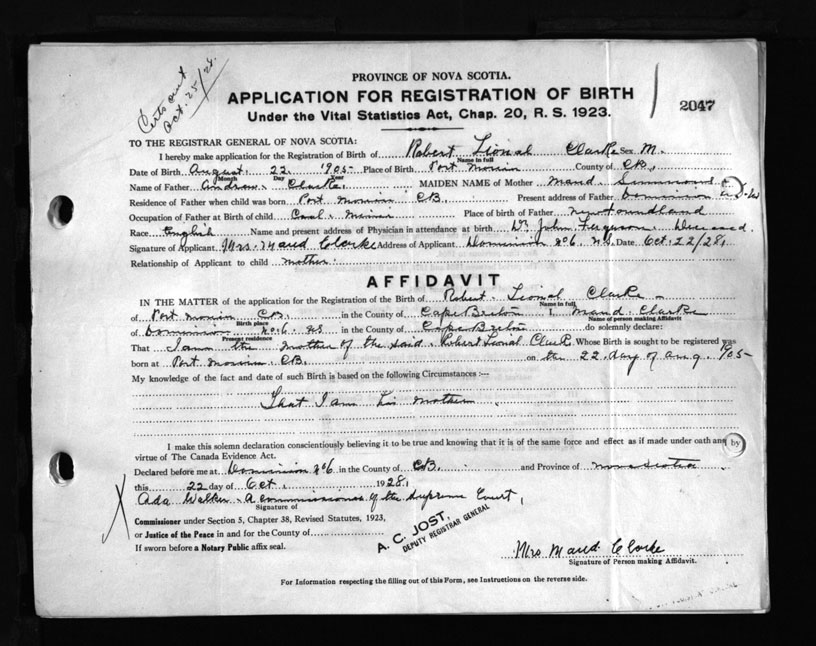 Certs out
Oct. 25/28.
PROVINCE OF NOVA SCOTIA.
APPLICATION FOR REGISTRATION OF BIRTH
2047
Under the Vital Statistics Act, Chap. 20, R. S. 1923.
TO THE REGISTRAR GENERAL OF NOVA SCOTIA:
I hereby make application for the Registration of Birth of Robert Lional Clarke Sex M.
Name in full
Date of Birth August 22 1905 Place of Birth Port Morien County of CB.
Month Day Year
Name of Father Andrew Clarke. MAIDEN NAME of Mother Maud Simmions
Residence of Father when child was born Port Morien CB. Present address of Father Dominion
Occupation of Father at Birth of child Coal Miner Place of birth of Father Newfoundland
Race English Name and present address of Physician in attendance at birth Dr. John Ferguson. Deceased
Signature of Applicant Mrs. Maud Clarke Address of Applicant Dominion No 6 N.S. Date Oct. 22/28.
Relationship of Applicant to child mother.
AFFIDAVIT
IN THE MATTER of the application for the Registration of the Birth of Robert Lional Clarke
Name in full
of Port Morien CB. in the County of Cape Breton I, Maud Clarke
Birth place Name of person making Affidavit
of Dominion No. 6. NS in the County of Cape Breton do solemnly declare:
Present residence
That I am the mother of the said Robert Lional Clark. Whose Birth is sought to be registered was
born at Port Morien CB. on the 22 day of Aug. 1905
My knowledge of the fact and date of such Birth is based on the following Circumstances :—
That I am his mother.
I make this solemn declaration conscientiously believing it to be true and knowing that it is of the same force and effect as if made under oath and by
virtue of The Canada Evidence Act.
Declared before me at Dominion No 6 in the County of CB. and Province of Nova Scotia
this 22 day of Oct. 1928.
Ada Walker. A Commissioner of the Supreme Court,
Signature of
Commissioner under Section 5, Chapter 38, Revised Statutes, 1923,
or Justice of the Peace in and for the County of
If sworn before a Notary Public affix seal.
A. C. JOST,
DEPUTY REGISTRAR GENERAL
Mrs Maud Clarke
Signature of Person making Affidavit.
For Information respecting the filling out of this Form, see Instructions on the reverse side.